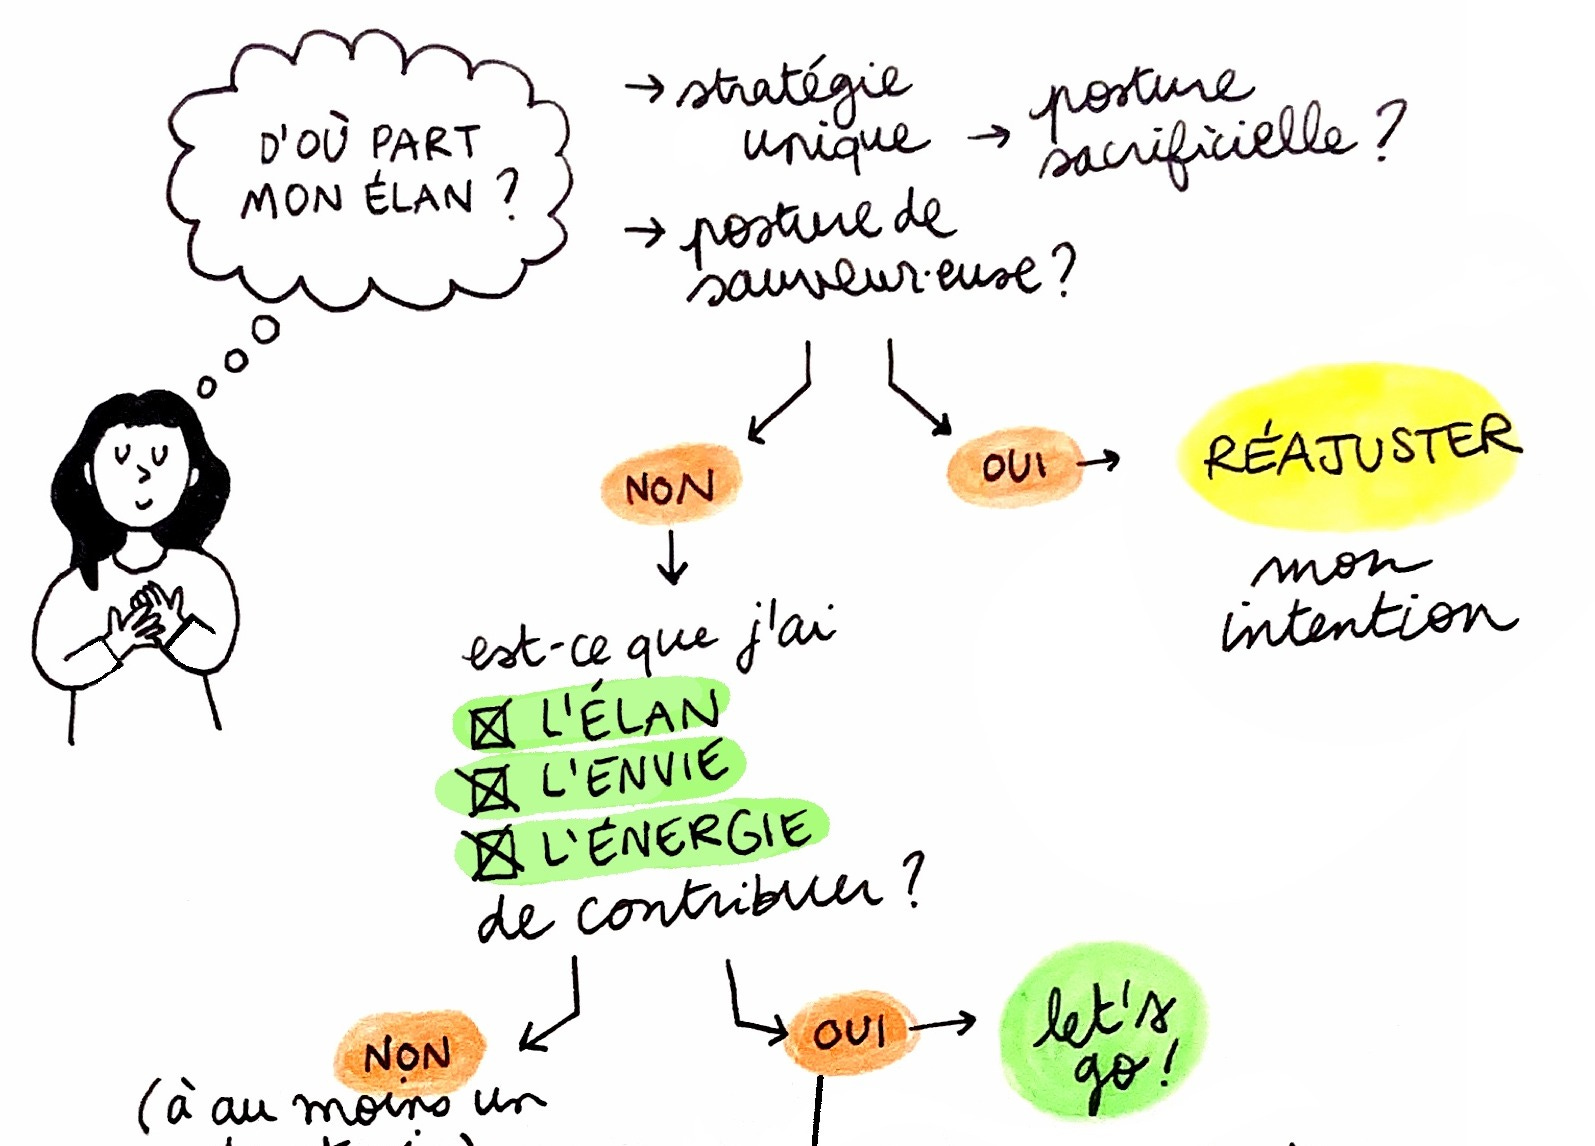 D'OÙ PART
MON ÉLAN ?
→ stratégie
unique → posture
sacrificielle ?
→ posture de
sauveur·euse ?
NON
OUI →
RÉAJUSTER
mon
intention
est-ce que j'ai
☒ L'ÉLAN
☒ L'ENVIE
☒ L'ÉNERGIE
de contribuer ?
NON
(à au moins un
OUI →
let's
go !